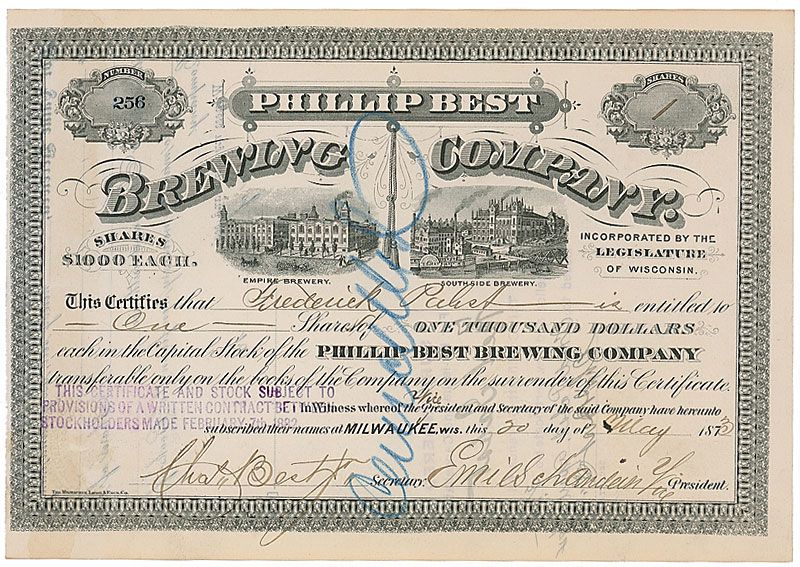 NUMBER
256
SHARES
1
PHILLIP BEST
BREWING COMPANY.
SHARES
$1000 EACH.
EMPIRE BREWERY.
SOUTH SIDE BREWERY.
INCORPORATED BY THE
LEGISLATURE
OF WISCONSIN.
This Certifies that Frederick Pabst is entitled to
One Shares of ONE THOUSAND DOLLARS
each in the Capital Stock of the PHILLIP BEST BREWING COMPANY
transferable only on the books of the Company on the surrender of this Certificate.
THIS CERTIFICATE AND STOCK SUBJECT TO
PROVISIONS OF A WRITTEN CONTRACT BETWEEN
STOCKHOLDERS MADE FEBRUARY 7th 1882
Vice
In Witness whereof the President and Secretary of the said Company have hereunto
subscribed their names at MILWAUKEE, WIS. this 20 day of May 187
Chas. Best Jr. Secretary. Emil Schandein Vice President.
Cancelled